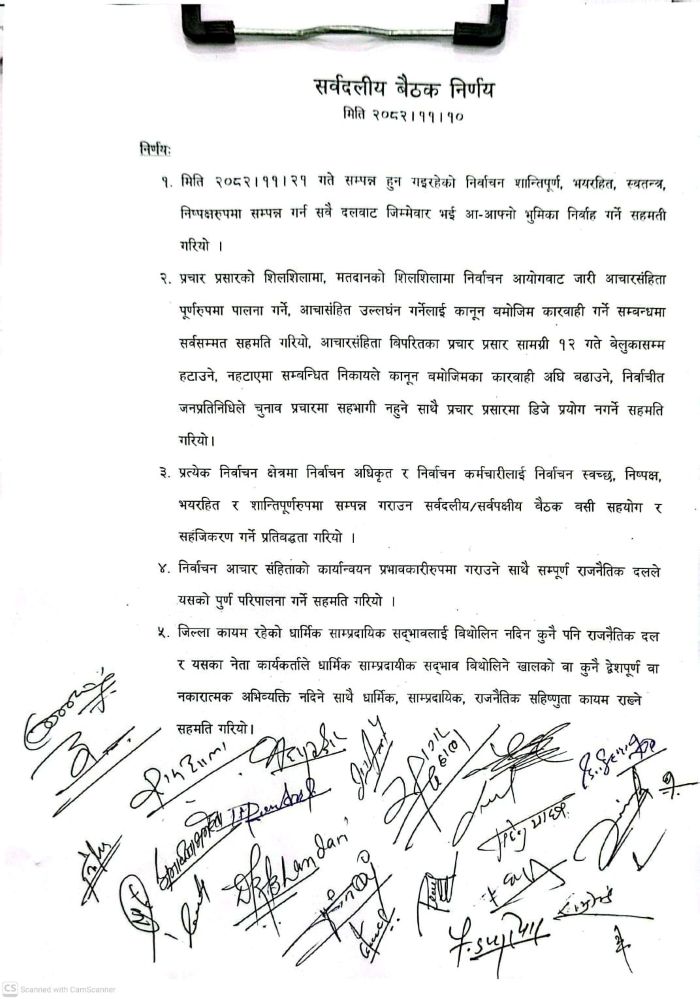 सर्वदलीय बैठक निर्णय
मिति २०८२।११।१०
निर्णयः
१. मिति २०८२।११।२१ गते सम्पन्न हुन गइरहेको निर्वाचन शान्तिपूर्ण, भयरहित, स्वतन्त्र,
निष्पक्षरुपमा सम्पन्न गर्न सवै दलवाट जिम्मेवार भई आ-आफ्नो भुमिका निर्वाह गर्ने सहमती
गरियो ।
२. प्रचार प्रसारको शिलशिलामा, मतदानको शिलशिलामा निर्वाचन आयोगवाट जारी आचारसंहिता
पूर्णरुपमा पालना गर्ने, आचासंहित उल्लघंन गर्नेलाई कानून वमोजिम कारवाही गर्ने सम्वन्धमा
सर्वसम्मत सहमति गरियो, आचारसंहिता बिपरितका प्रचार प्रसार सामग्री १२ गते बेलुकासम्म
हटाउने, नहटाएमा सम्वन्धित निकायले कानून वमोजिमका कारवाही अघि बढाउने, निर्वाचीत
जनप्रतिनिधिले चुनाव प्रचारमा सहभागी नहुने साथै प्रचार प्रसारमा डिजे प्रयोग नगर्ने सहमति
गरियो।
३. प्रत्येक निर्वाचन क्षेत्रमा निर्वाचन अधिकृत र निर्वाचन कर्मचारीलाई निर्वाचन स्वच्छ, निष्पक्ष,
भयरहित र शान्तिपूर्णरुपमा सम्पन्न गराउन सर्वदलीय/सर्वपक्षीय बैठक वसी सहयोग र
सहंजिकरण गर्ने प्रतिवद्धता गरियो ।
४. निर्वाचन आचार संहिताको कार्यान्वयन प्रभावकारीरुपमा गराउने साथै सम्पूर्ण राजनैतिक दलले
यसको पुर्ण परिपालना गर्ने सहमति गरियो ।
५. जिल्ला कायम रहेको धार्मिक साम्प्रदायिक सद्भावलाई विथोलिन नदिन कुनै पनि राजनैतिक दल
र यसका नेता कार्यकर्ताले धार्मिक साम्प्रदायीक सद्भाव विथोलिने खालको वा कुनै द्वेशपूर्ण वा
नकारात्मक अभिव्यक्ति नदिने साथै धार्मिक, साम्प्रदायिक, राजनैतिक सहिष्णुता कायम राख्ने
सहमति गरियो।
DRBhandari
CS Scanned with CamScanner